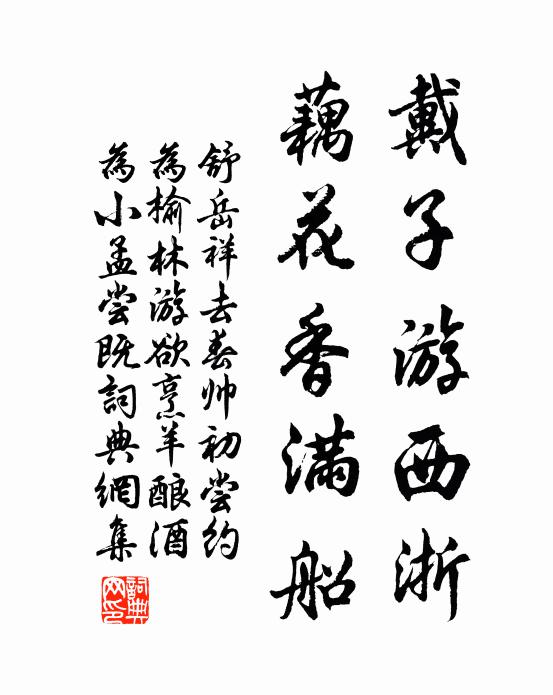 戴子游西浙
藕花香满船
舒岳祥去春帅初尝约
為榆林游欲烹羊酿酒
為小孟尝既詞典網集
詞典網印